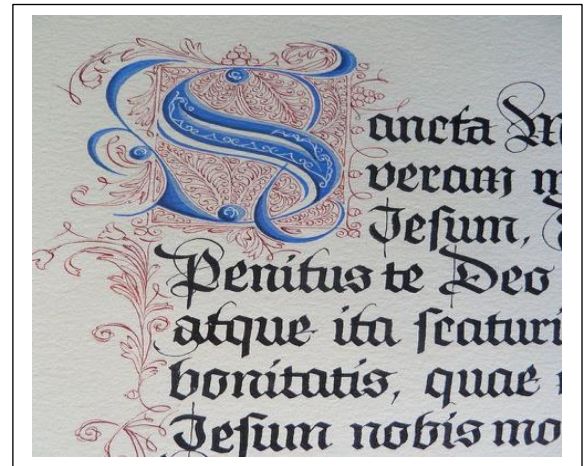 Sancta M
veram m
Jesum,
Penitus te Deo
atque ita scaturi
bonitatis, quae
Jesum nobis mo